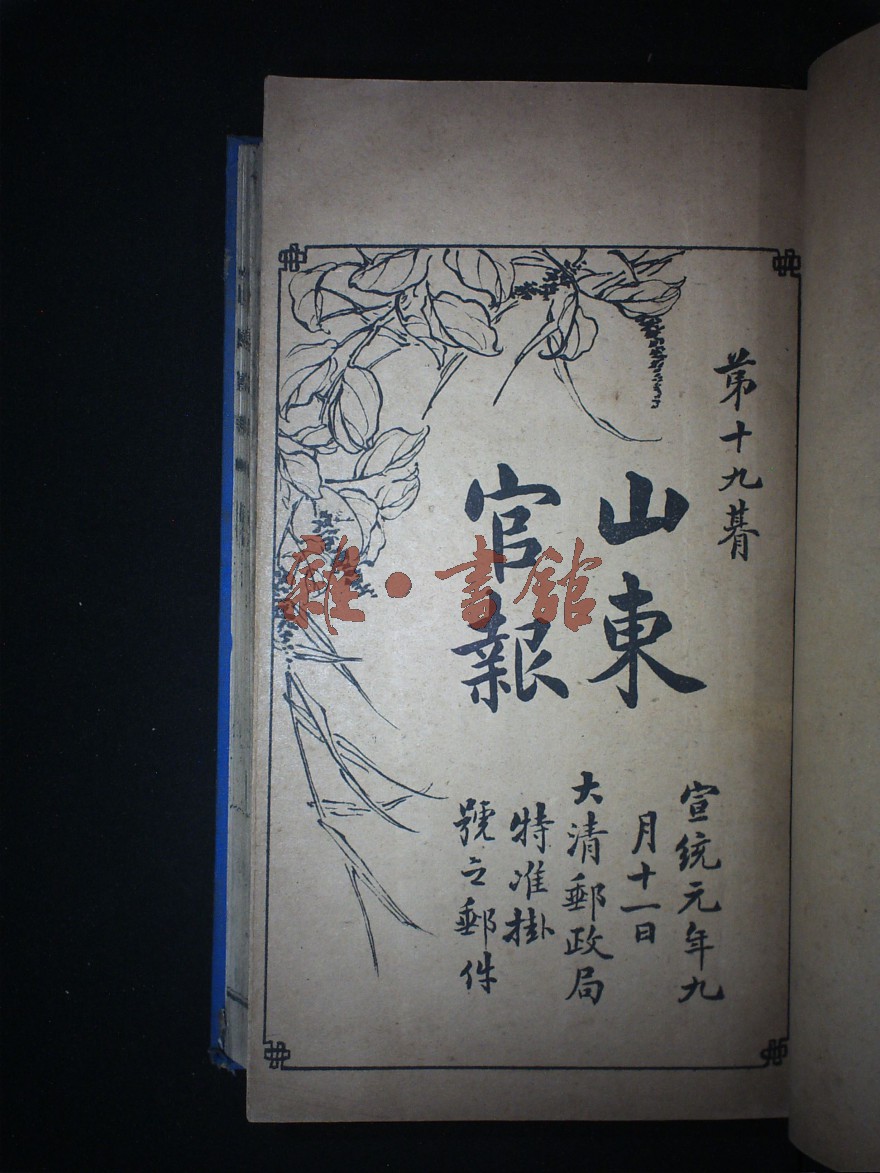 第十九朞
山東
官報
宣統元年九
月十一日
大清郵政局
特准掛
號之郵件
雜·書館